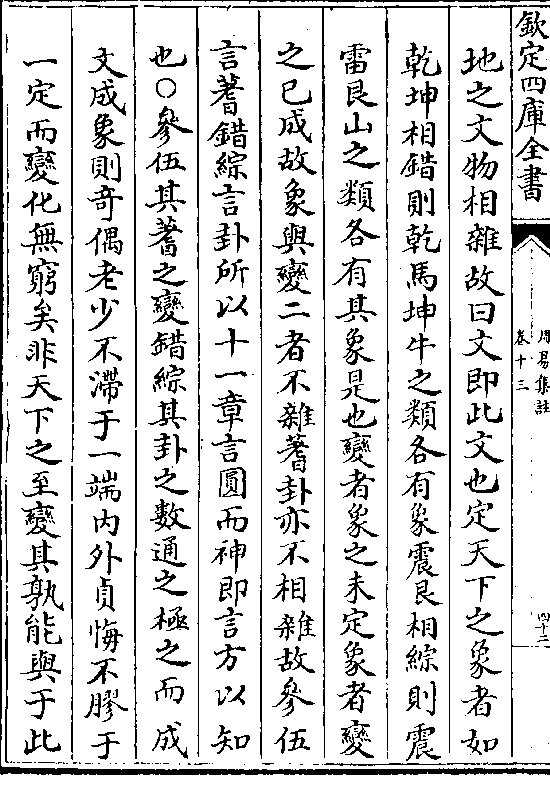 欽定四庫全書
周易集註
卷十三
四十二
地之文物相雜故曰文即此文也定天下之象者如
乾坤相錯則乾馬坤牛之類各有象震艮相綜則震
雷艮山之類各有其象是也變者象之未定象者變
之已成故象與變二者不雜蓍卦亦不相雜故參伍
言蓍錯綜言卦所以十一章言圓而神即言方以知
也○參伍其蓍之變錯綜其卦之數通之極之而成
文成象則奇偶老少不滯于一端内外貞悔不膠于
一定而變化無窮矣非天下之至變其孰能與于此